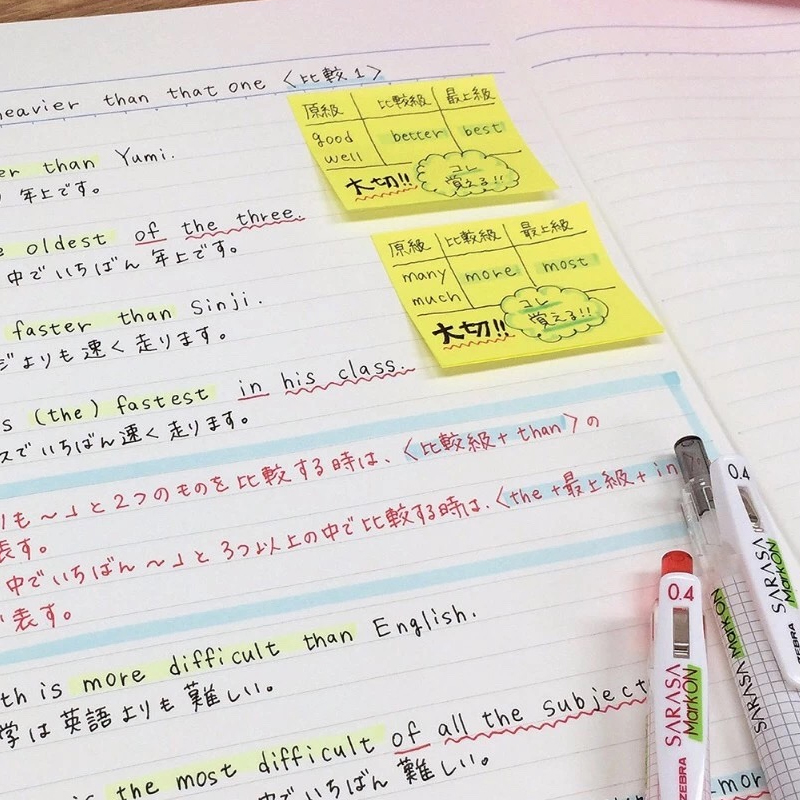 heavier than that one 〈比較 1〉
er than Yumi.
年上です。
e oldest of the three.
中でいちばん 年上です。
faster than Sinji.
よりも速く走ります。
s (the) fastest in his class.
スでいちばん速く走ります。
原級 比較級 最上級
good better best
well
大切!! コレ
覚える!!
原級 比較級 最上級
many more most
much
大切!! コレ
覚える!!
りも〜」と2つのものを比較する時は、〈比較級+than〉の
表す。
中でいちばん〜」と3つ以上の中で比較する時は、〈the+最上級+in
表す。
th is more difficult than English.
学は英語よりも難しい。
is the most difficult of all the subject
中でいちばん 難しい。
0.4
SARASA
MarkON
ZEBRA
SARASA MarkON
0.4
SARASA
MarkON
ZEBRA